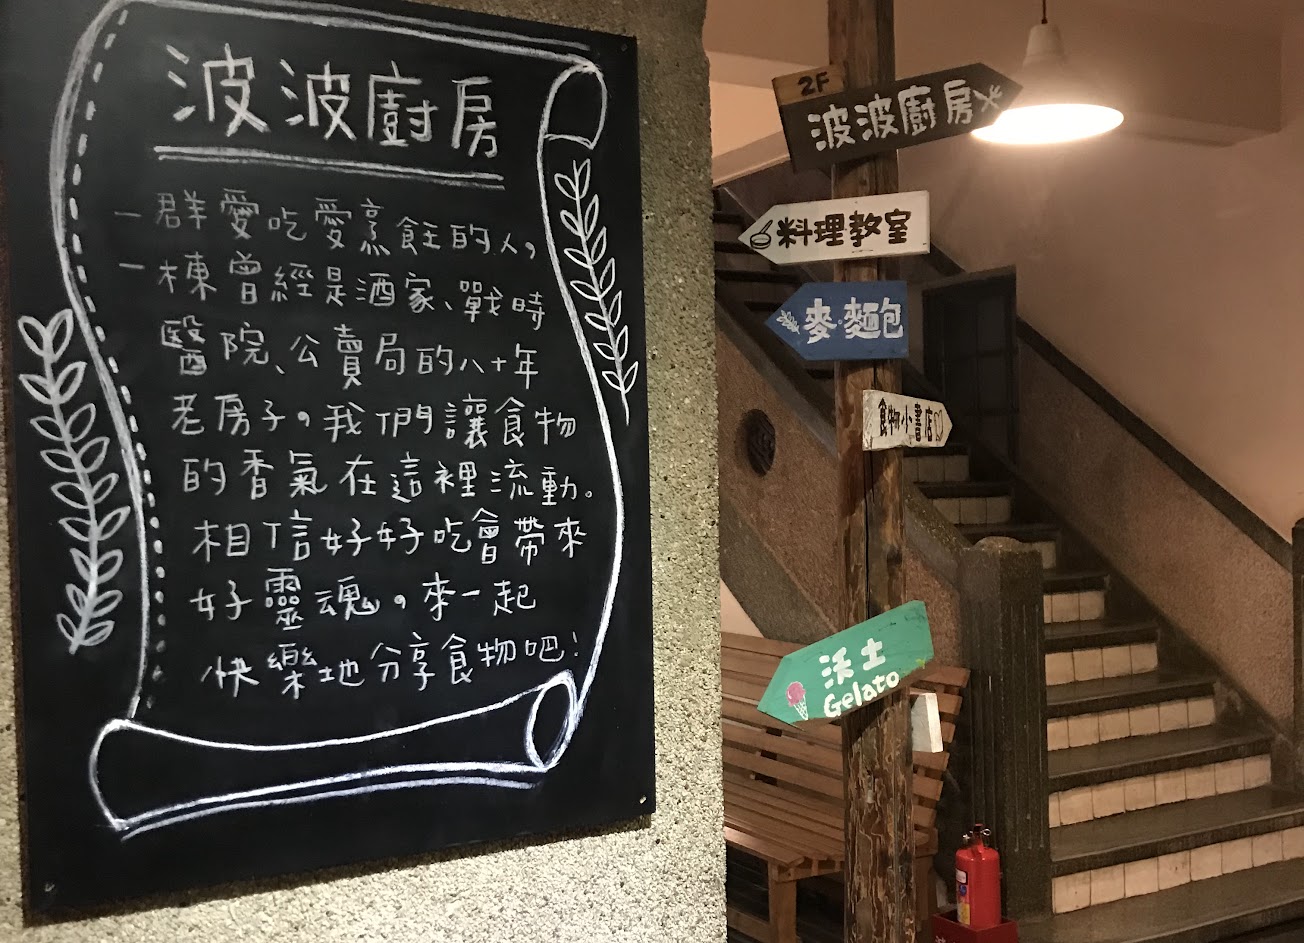 波波廚房
一群愛吃愛烹飪的人，
一棟曾經是酒家、戰時
醫院、公賣局的八十年
老房子。我們讓食物
的香氣在這裡流動。
相信好好吃會帶來
好靈魂。來一起
快樂地分享食物吧！
2F
波波廚房
料理教室
麥·麵包
食物小書店
沃土
Gelato